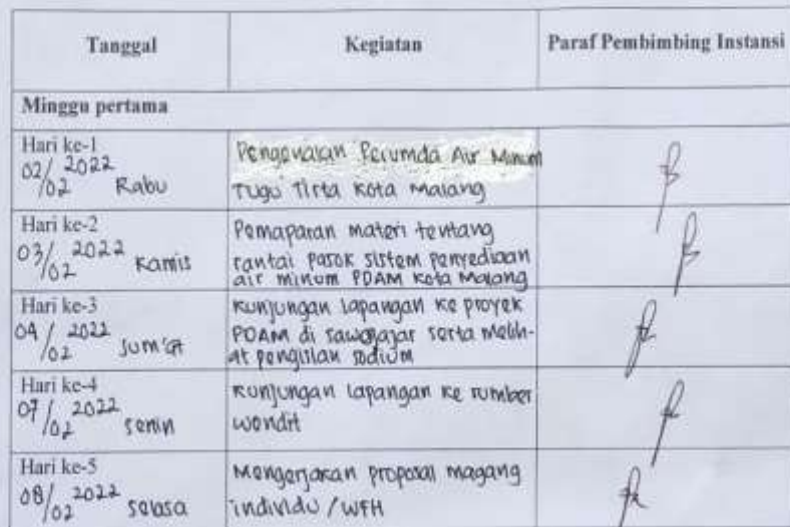 Tanggal Kegiatan Paraf Pembimbing Instansi
Minggu pertama
Hari ke-1
02/02 2022 Rabu
Pengenalan Perumda Air Minum
Tugu Tirta Kota Malang
Hari ke-2
03/02 2022 Kamis
Pemaparan materi tentang
rantai pasok sistem penyediaan
air minum PDAM Kota Malang
Hari ke-3
04/02 2022 Jum'at
Kunjungan lapangan ke proyek
PDAM di sawojajar serta melih-
at pengisian sodium
Hari ke-4
07/02 2022 Senin
Kunjungan lapangan ke sumber
wendit
Hari ke-5
08/02 2022 Selasa
Mengerjakan proposal magang
individu / WFH